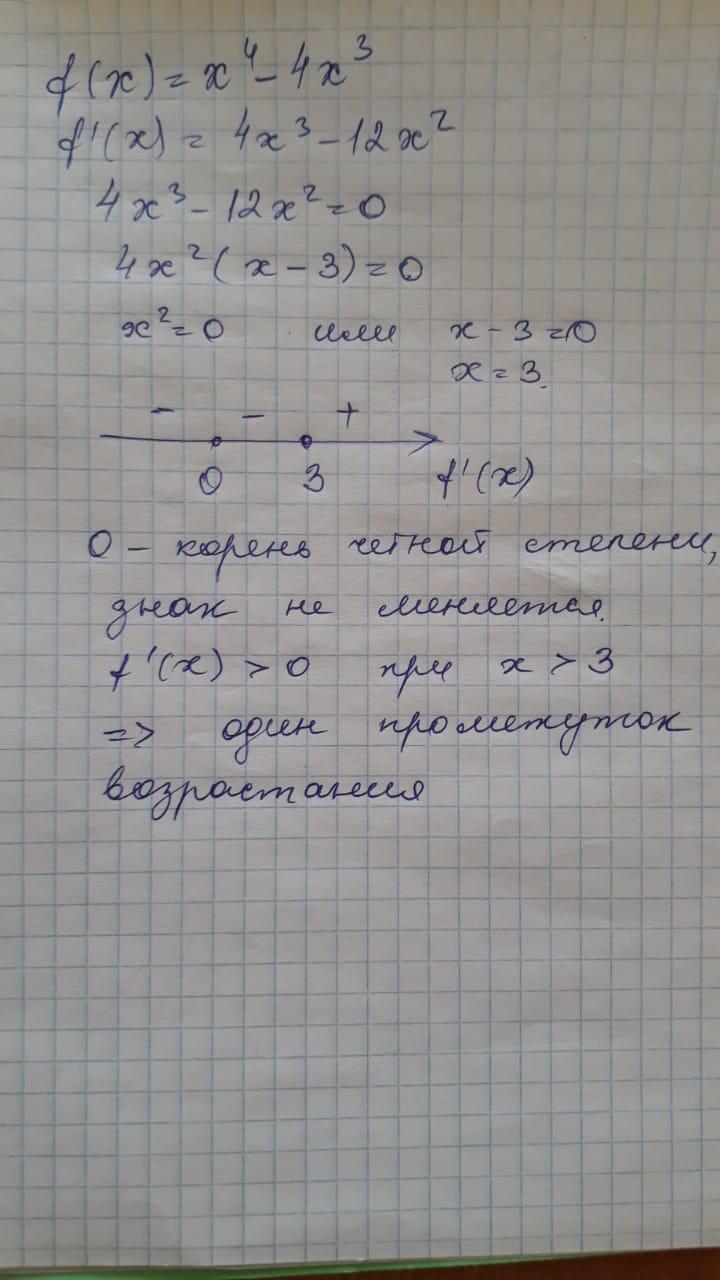 f(x) = x⁴ - 4x³
f'(x) = 4x³ - 12x²
4x³ - 12x² = 0
4x²(x - 3) = 0
x² = 0 или x - 3 = 0
x = 3.
- - +
0 3 f'(x)
0 - корень четной степени,
знак не меняется.
f'(x) > 0 при x > 3
=> один промежуток
возрастания